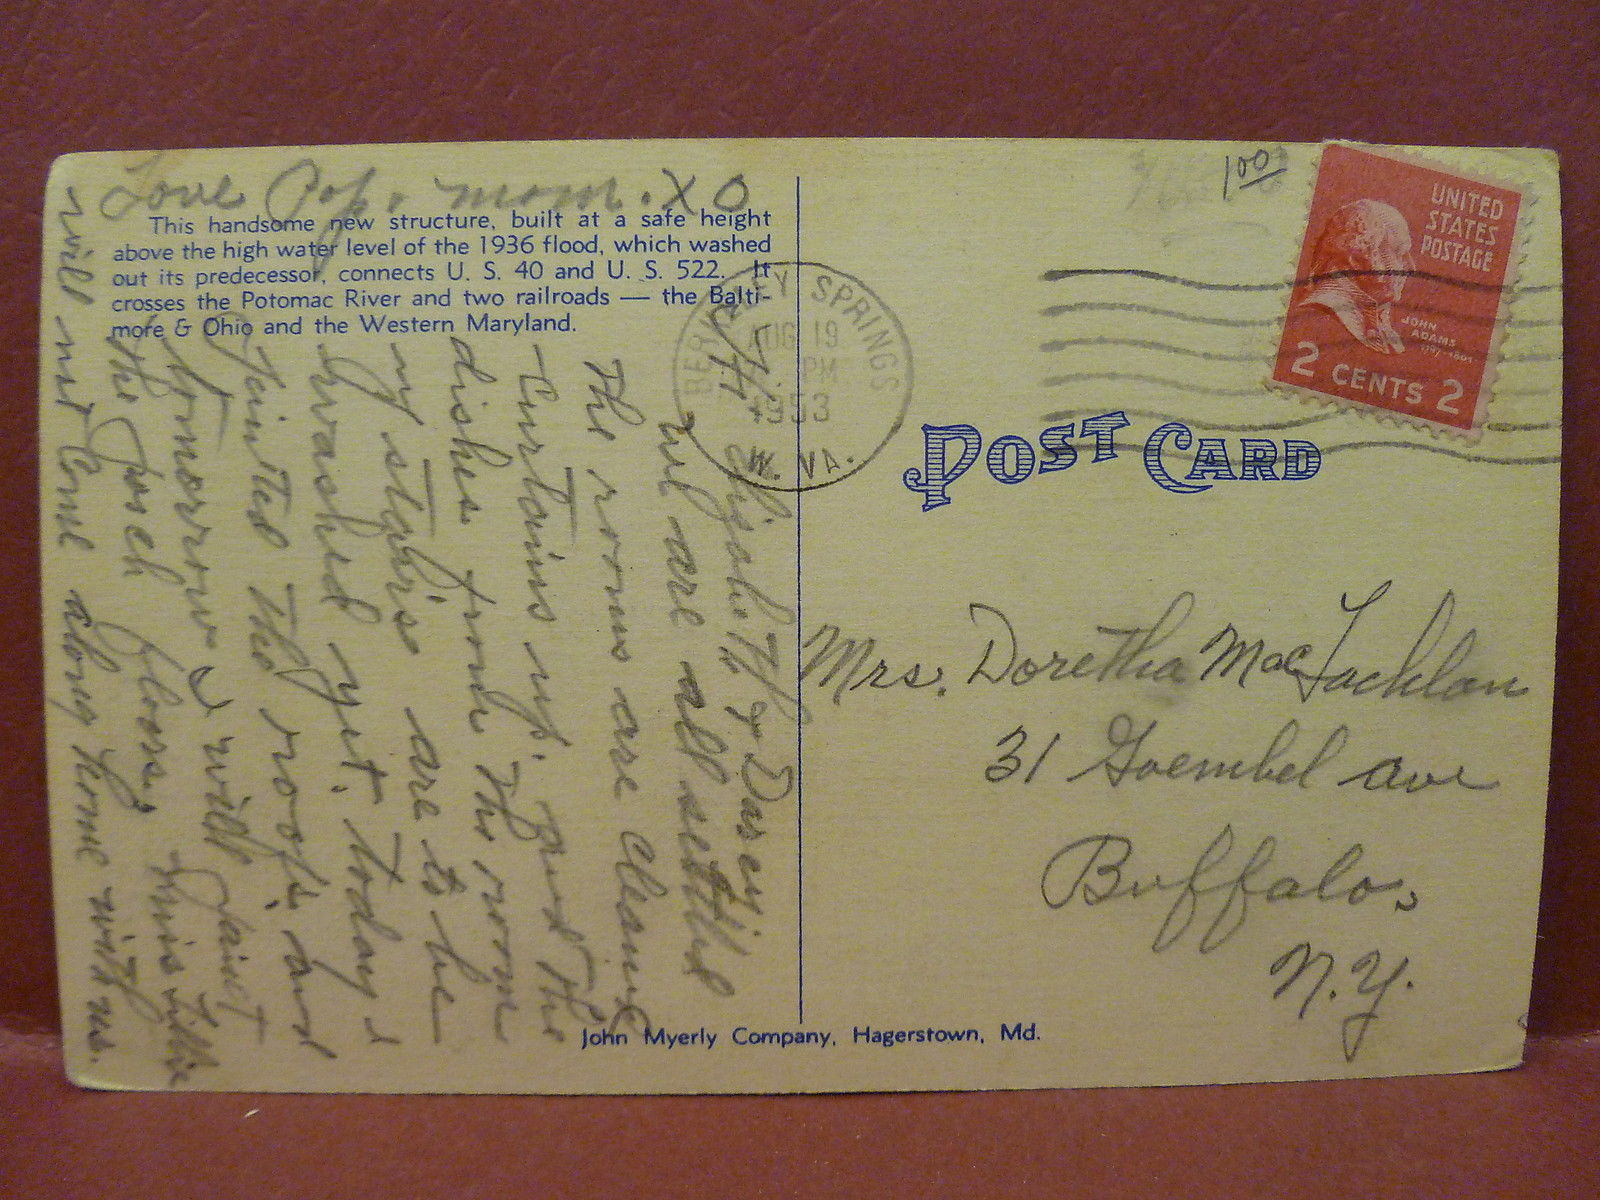 Love Pop. mom. X O
This handsome new structure, built at a safe height
above the high water level of the 1936 flood, which washed
out its predecessor, connects U. S. 40 and U. S. 522. It
crosses the Potomac River and two railroads — the Balti-
more & Ohio and the Western Maryland.
Elizabeth
we are all settled
The rooms are cleaned
Curtains up. and the
dishes from the room
up stairs are to be
washed yet. today I
painted the roofs. and
tomorrow I will paint
the porch floors. Miss Lillie
will not come along home with us.
BERKELEY SPRINGS
AUG 19
PM
1953
W. VA.
100
UNITED
STATES
POSTAGE
JOHN
ADAMS
1797-1801
2 CENTS 2
POST CARD
Mrs. Doretha MacLachlan
31 Goembel ave
Buffalo,
N.Y.
John Myerly Company, Hagerstown, Md.